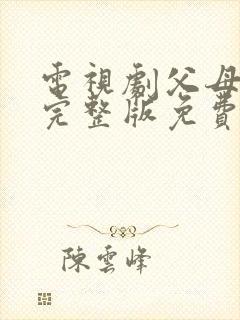 電視劇父母
完整版免費
陳雲峰